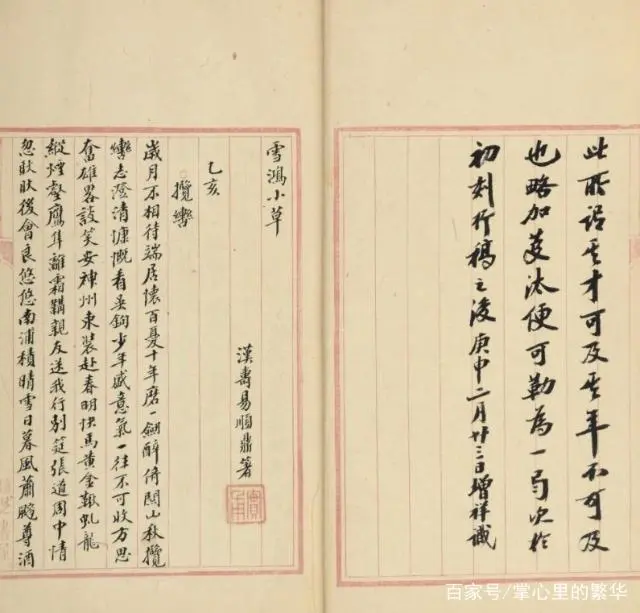 此所謂其才可及其年不可及
也略加芟汰便可勒為一書次於
初刻行稿之後庚申二月廿三日增祥識
雪鴻小草
漢壽易順鼎著
實甫
乙亥
攬轡
歲月不相待端居懷百憂十年磨一劍醉倚關山秋攬
轡志澄清慷慨看吳鉤少年盛意氣一往不可收方思
奮雄畧談笑安神州束裝赴春明快馬黃金鞦虬龍
縱煙壑鷹隼離霜韝親友送我行別筵張道周中情
忽耿耿後會良悠悠南浦積晴雪日暮風蕭颼尊酒
百家号/掌心里的繁华